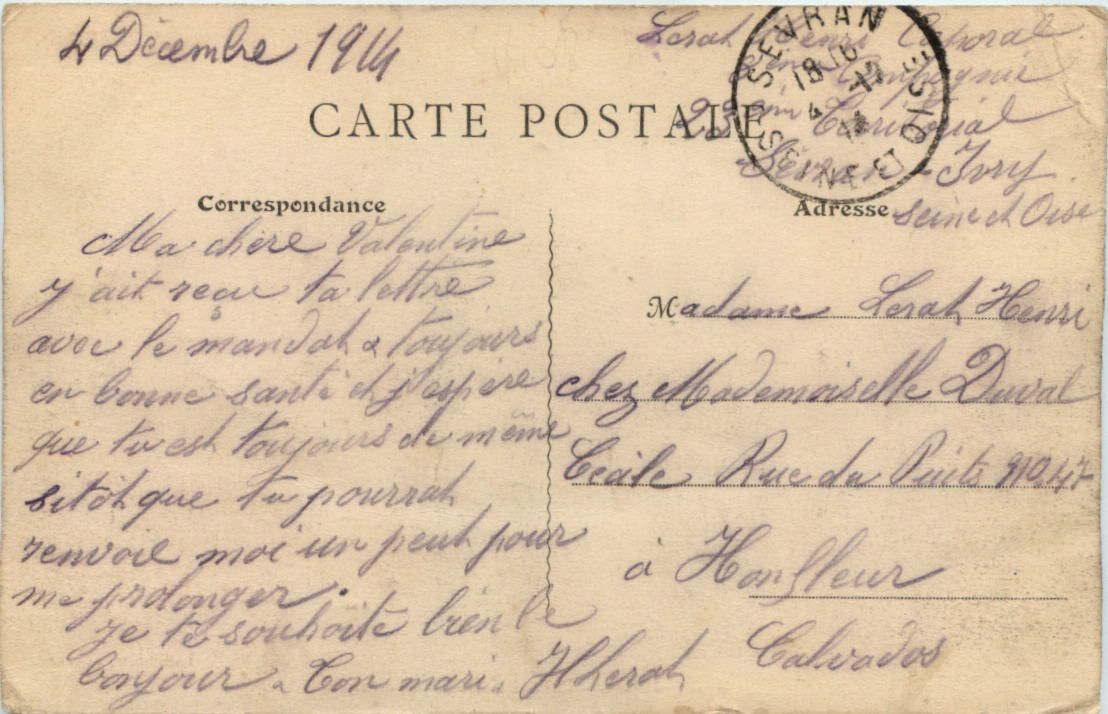 4 Décembre 1914
Lerat Henri Caporal
Compagnie
23eme Territorial
Sevran - Ivry
Seine et Oise
SEVRAN
18 15
4 -12
14
SEINE ET OISE
CARTE POSTALE
Correspondance
Ma chère Valentine
j'ait reçu ta lettre
avec le mandat & toujours
en bonne santé et j'espère
que tu est toujours de même
sitot que tu pourrat
renvoie moi un peut pour
me prolonger.
Je te souhaite bien le
bonjour. Ton mari. HLerat
Adresse
Madame Lerat Henri
chez Mademoiselle Duval
Cécile Rue du Puits No 47
à Honfleur
Calvados